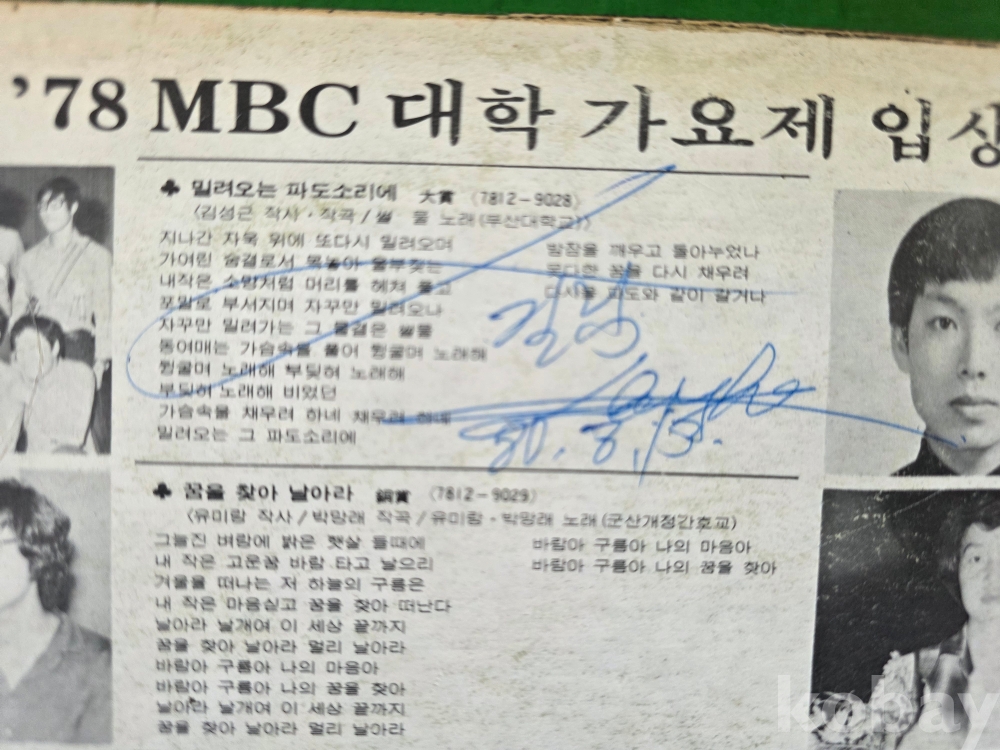 '78 MBC 대학 가요제 입상
♣ 밀려오는 파도소리에 大賞 (7812-9028)
(김성근 작사·작곡/썰 물 노래(부산대학교))
지나간 자욱 위에 또다시 밀려오며
가여린 숨결로서 목놓아 울부짖는
내작은 소망처럼 머리를 헤쳐 풀고
포말로 부서지며 자꾸만 밀려오나
자꾸만 밀려가는 그 물결은 썰물
동여매는 가슴속을 풀어 뒹굴며 노래해
뒹굴며 노래해 부딪혀 노래해
부딪혀 노래해 비었던
가슴속을 채우려 하네 채우려 하네
밀려오는 그 파도소리에
밤잠을 깨우고 돌아누웠나
못다한 꿈을 다시 채우려
다시올 파도와 같이 갈거나
80. 8. 13.
♣ 꿈을 찾아 날아라 銅賞 (7812-9029)
(유미랑 작사/박망래 작곡/유미랑·박망래 노래(군산개정간호교)
그늘진 벼랑에 밝은 햇살 들때에
내 작은 고운꿈 바람 타고 날으리
겨울을 떠나는 저 하늘의 구름은
내 작은 마음싣고 꿈을 찾아 떠난다
날아라 날개여 이 세상 끝까지
꿈을 찾아 날아라 멀리 날아라
바람아 구름아 나의 마음아
바람아 구름아 나의 꿈을 찾아
날아라 날개여 이 세상 끝까지
꿈을 찾아 날아라 멀리 날아라
바람아 구름아 나의 마음아
바람아 구름아 나의 꿈을 찾아
kobay